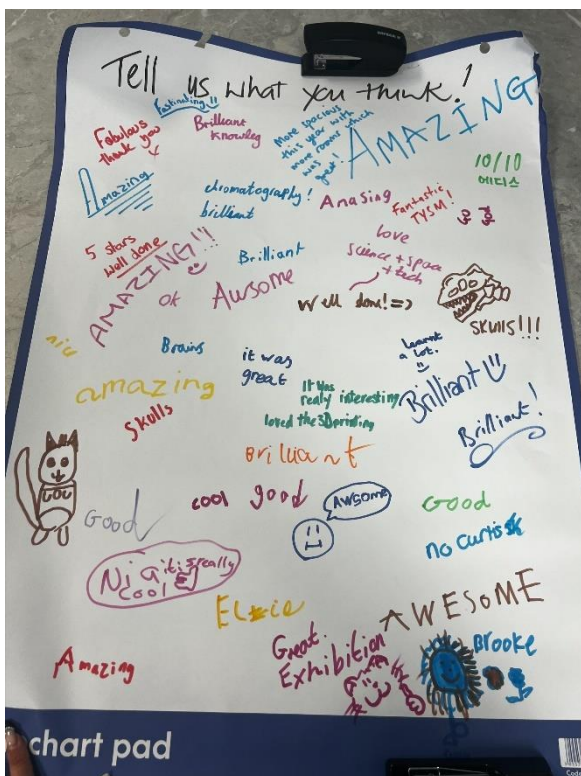 Tell us what you think!
Fastinating!!
Fabulous
thank you
Brilliant
Knowleg
More spacious
this year with
more rooms which
was
great.
AMAZING
10/10
에디스
Amazing
chromatography!
brilliant
Anasing
Fantastic
TYSM!
5 stars
well done
AMAZING!!
Brilliant
love
science + space
+ tech
ok
Awsome
Well done! =>
SKULLS!!!
nic
Brains
it was
great
Learnt
a lot.
amazing
It was
realy interesting
loved the 3D printing
Brilliant
Brilliant!
Skulls
Brilliant
Good
cool
good
AWSOME
Good
no curtis
it is really
cool
AWESOME
Great
Exhibition
Brooke
Amazing
chart pad